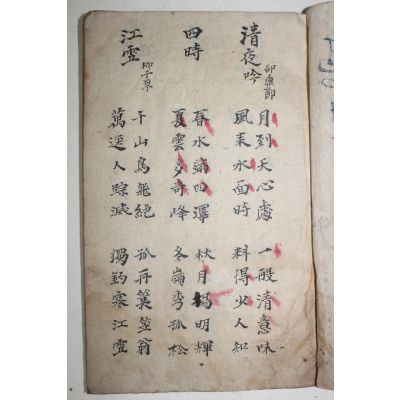 清夜吟
邵康節
月到天心處 一般清意味
風來水面時 料得少人知
四時
春水滿四澤 秋月揚明輝
夏雲多奇峰 冬嶺秀孤松
江雪
柳子厚
千山鳥飛絕 孤舟簑笠翁
萬逕人踪滅 獨釣寒江雪